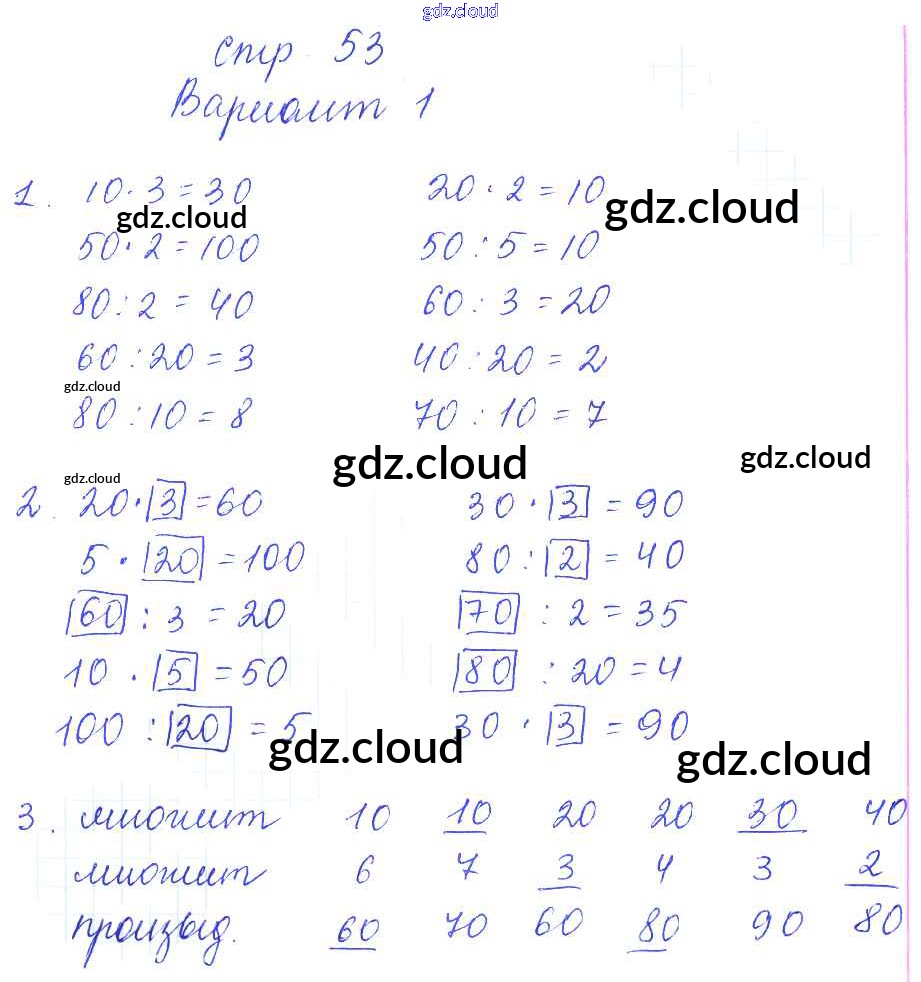 gdz.cloud
стр 53
Вариант 1
1. 10 · 3 = 30 20 · 2 = 10
gdz.cloud gdz.cloud
50 · 2 = 100 50 : 5 = 10
80 : 2 = 40 60 : 3 = 20
60 : 20 = 3 40 : 20 = 2
gdz.cloud
80 : 10 = 8 70 : 10 = 7
gdz.cloud gdz.cloud
gdz.cloud
2. 20 · 3 = 60 30 · 3 = 90
5 · 20 = 100 80 : 2 = 40
60 : 3 = 20 70 : 2 = 35
10 · 5 = 50 80 : 20 = 4
100 : 20 = 5 30 · 3 = 90
gdz.cloud gdz.cloud
3. множит 10 10 20 20 30 40
множит 6 7 3 4 3 2
произвд. 60 70 60 80 90 80